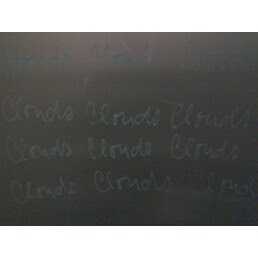 Clouds Clouds Clouds
Clouds Clouds Clouds
Clouds Clouds Clouds
Clouds Clouds Clouds